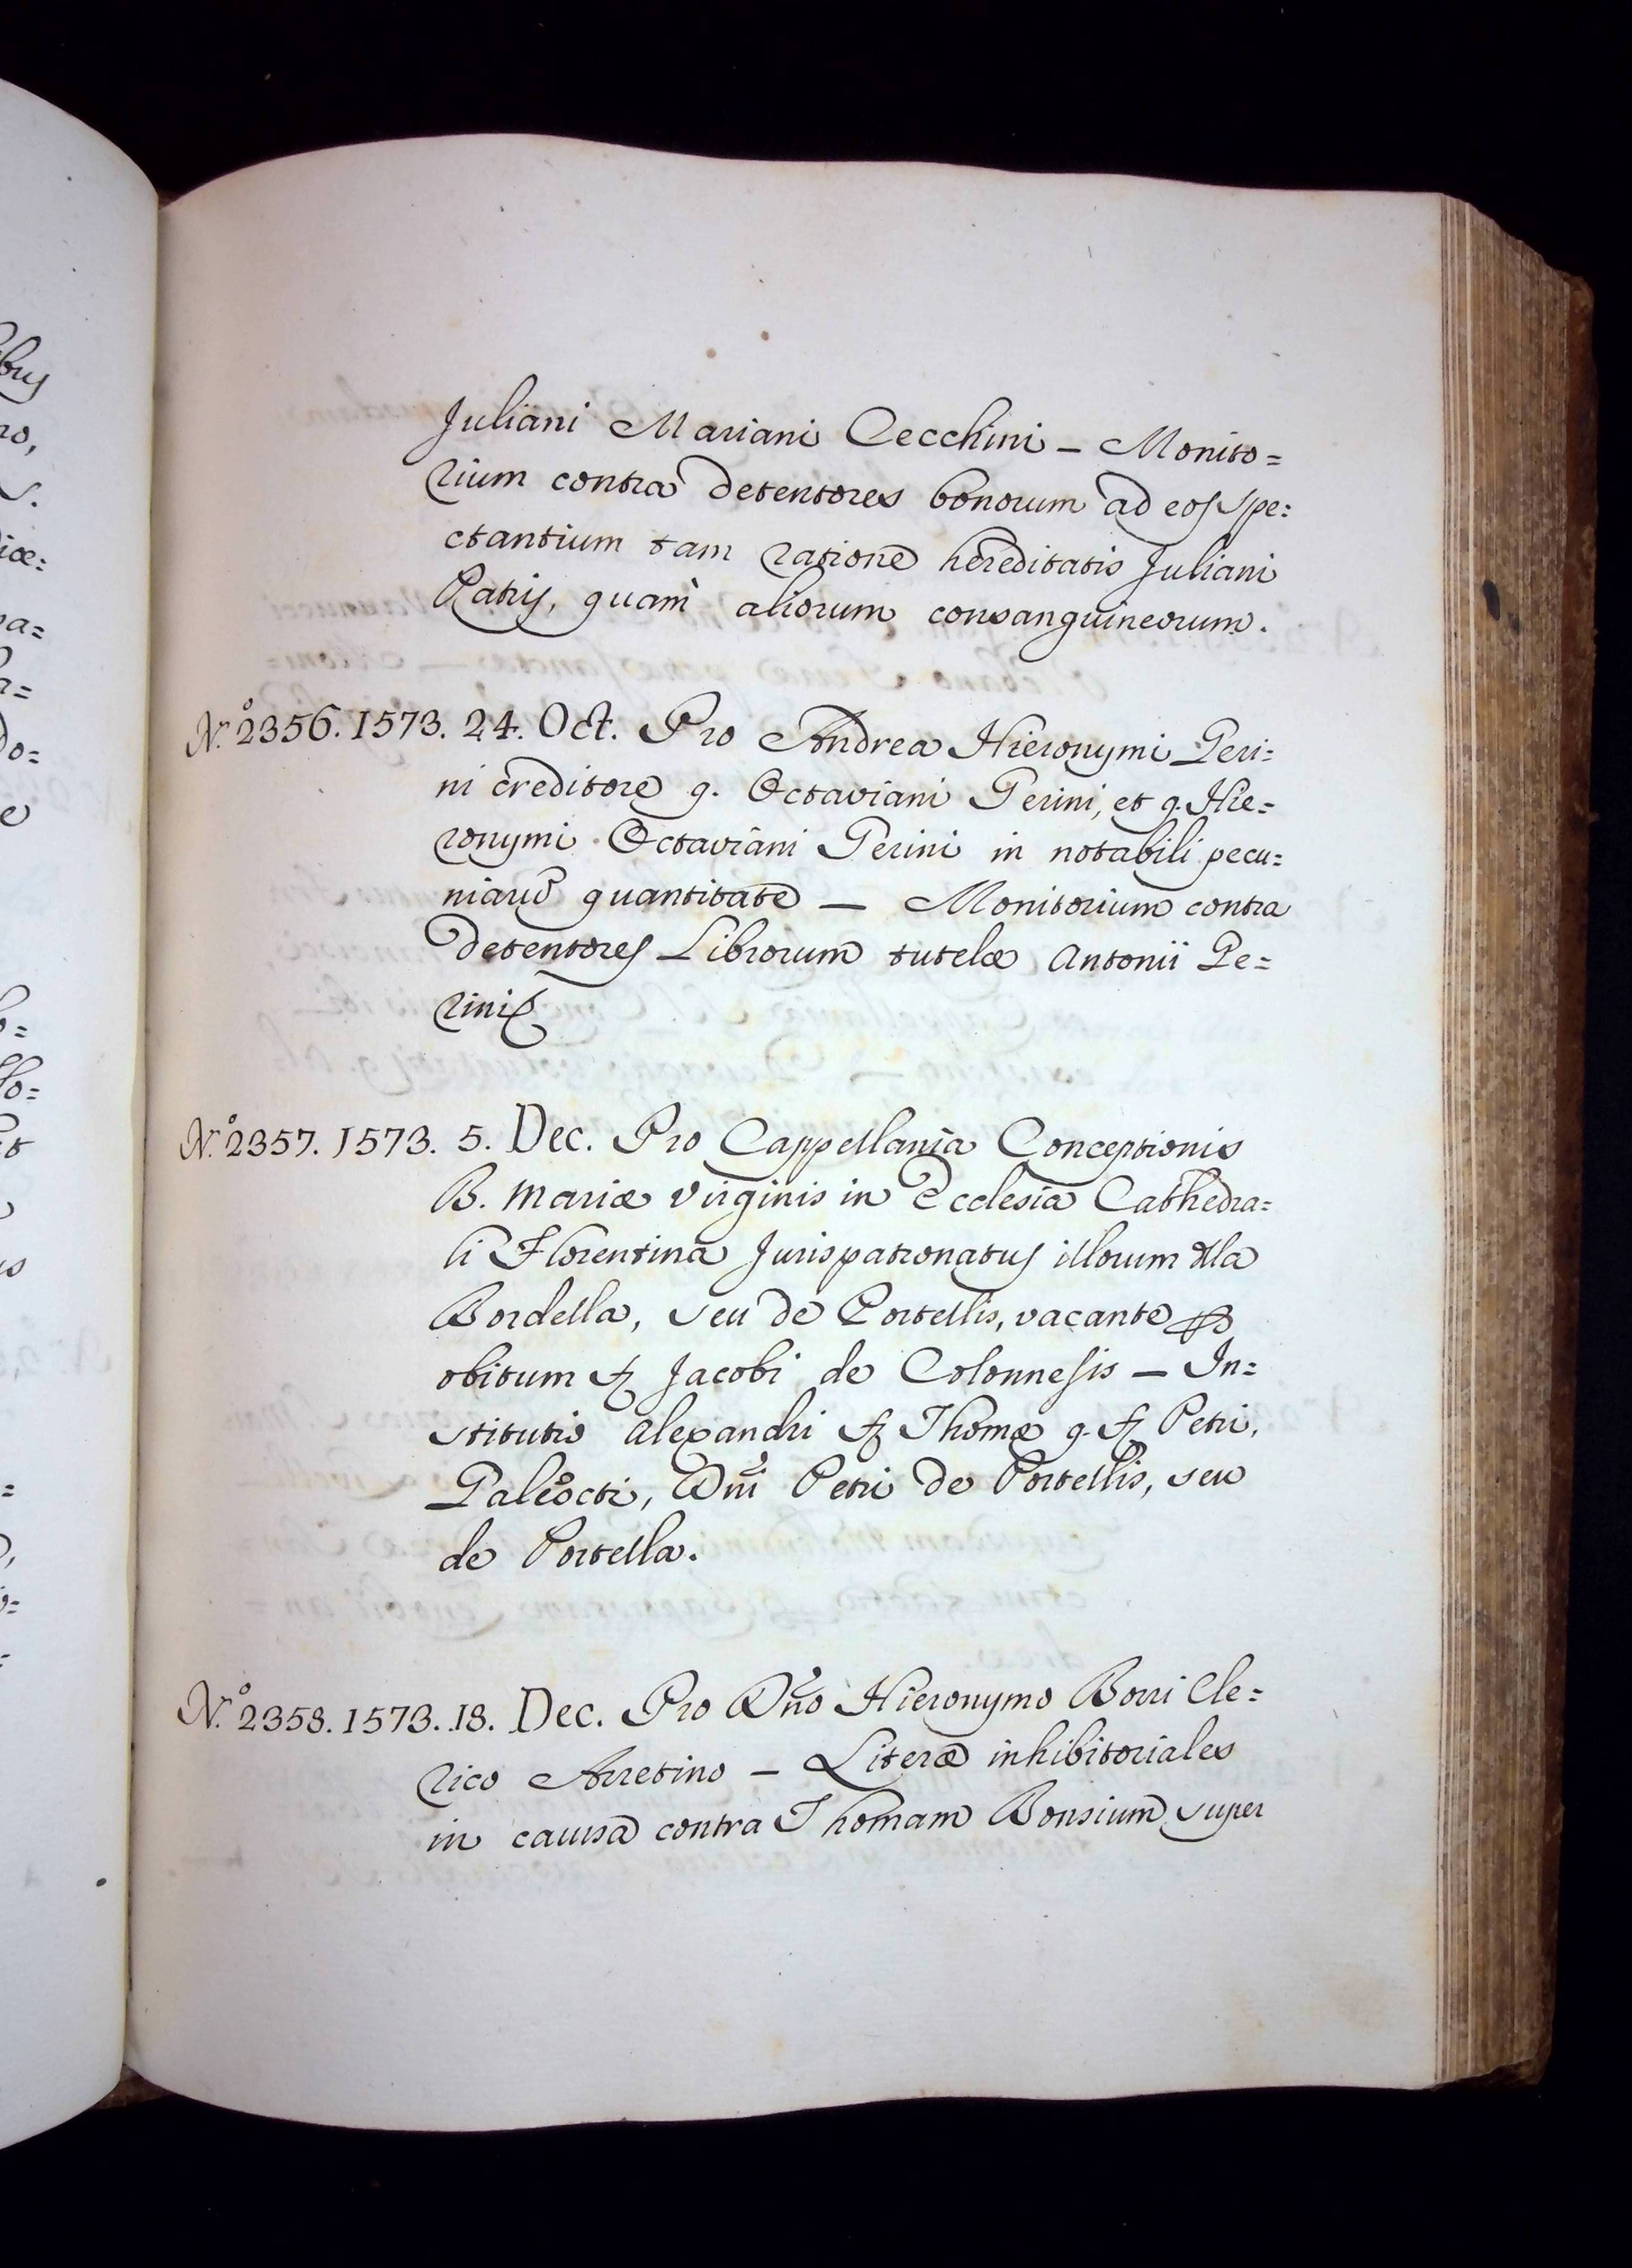 Juliani Mariani Cecchini – Monito=
rium contra detentores bonorum ad eos spe=
ctantium tam ratione hereditatis Juliani
Patris, quam aliorum consanguineorum.
N.º 2356. 1573. 24. Oct. Pro Andrea Hieronymi Geri=
ni creditore q. Octaviani Gerini, et q. Hie=
ronymi Octaviani Gerini in notabili pecu=
niarũ quantitate – Monitorium contra
detentores Librorum tutelæ Antonii Ge=
rini
N.º 2357. 1573. 5. Dec. Pro Cappellania Conceptionis
B. Mariæ Virginis in Ecclesia Cathedra=
li Florentina Jurispatronatus illorum
Bordella, seu de Portellis, vacante
obitum Jacobi de Colonnesis – In=
stitutio Alexandri Thomæ q. Petri,
Dñi Petri de Portellis, seu
de Portella.
N.º 2358. 1573. 18. Dec. Pro Dño Hieronymo Borri Cle=
rico Arretino – Literæ inhibitoriales
in causa contra Thomam Bonsium super